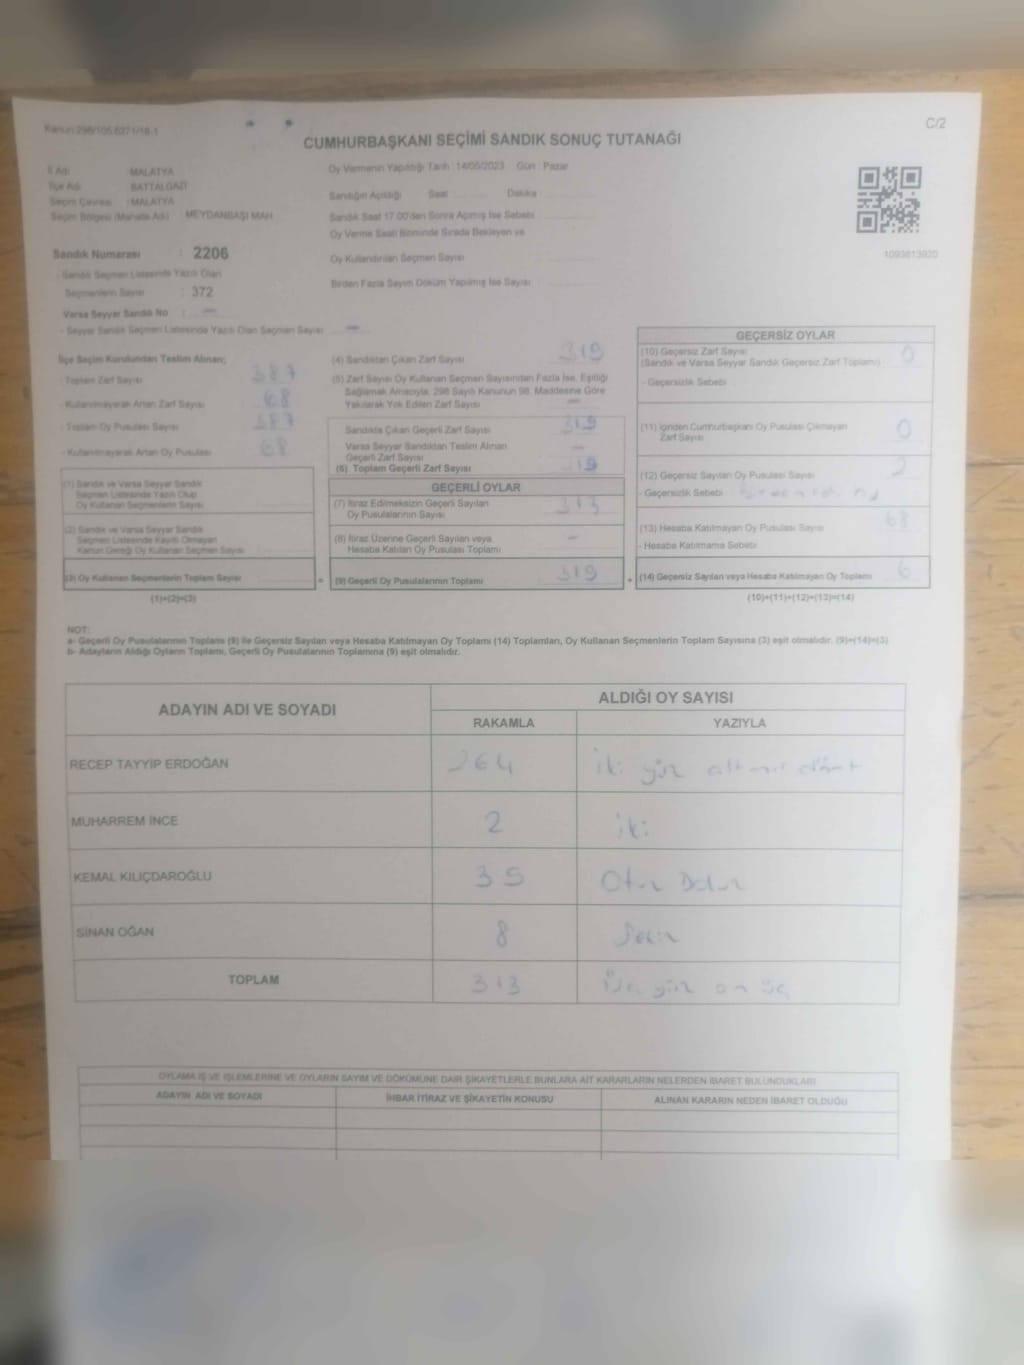 Kanun:298/105,6271/18-1
C/2
CUMHURBAŞKANI SEÇİMİ SANDIK SONUÇ TUTANAĞI
İl Adı MALATYA
İlçe Adı BATTALGAZİ
Seçim Çevresi : MALATYA
Seçim Bölgesi (Mahalle Adı) MEYDANBAŞI MAH
Sandık Numarası : 2206
- Sandık Seçmen Listesinde Yazılı Olan
Seçmenlerin Sayısı : 372
Varsa Seyyar Sandık No : -
- Seyyar Sandık Seçmen Listesinde Yazılı Olan Seçmen Sayısı -
Oy Vermenin Yapıldığı Tarih : 14/05/2023 Gün : Pazar
Sandığın Açıldığı Saat Dakika
Sandık Saat 17.00'den Sonra Açılmış İse Sebebi
Oy Verme Saati Bitiminde Sırada Bekleyen ve
Oy Kullandırılan Seçmen Sayısı
Birden Fazla Sayım Döküm Yapılmış İse Sayısı
1093613920
İlçe Seçim Kurulundan Teslim Alınan;
- Toplam Zarf Sayısı 387
- Kullanılmayarak Artan Zarf Sayısı 68
- Toplam Oy Pusulası Sayısı 387
- Kullanılmayarak Artan Oy Pusulası 68
(1) Sandık ve Varsa Seyyar Sandık
Seçmen Listesinde Yazılı Olup
Oy Kullanan Seçmenlerin Sayısı
(2) Sandık ve Varsa Seyyar Sandık
Seçmen Listesinde Kayıtlı Olmayan
Kanun Gereği Oy Kullanan Seçmen Sayısı
(3) Oy Kullanan Seçmenlerin Toplam Sayısı
(1)+(2)=(3)
(4) Sandıktan Çıkan Zarf Sayısı 319
(5) Zarf Sayısı Oy Kullanan Seçmen Sayısından Fazla İse, Eşitliği
Sağlamak Amacıyla, 298 Sayılı Kanunun 98. Maddesine Göre
Yakılarak Yok Edilen Zarf Sayısı -
Sandıkta Çıkan Geçerli Zarf Sayısı 319
Varsa Seyyar Sandıktan Teslim Alınan
Geçerli Zarf Sayısı -
(6) Toplam Geçerli Zarf Sayısı 319
GEÇERLİ OYLAR
(7) İtiraz Edilmeksizin Geçerli Sayılan
Oy Pusulalarının Sayısı 313
(8) İtiraz Üzerine Geçerli Sayılan veya
Hesaba Katılan Oy Pusulası Toplamı -
= (9) Geçerli Oy Pusulalarının Toplamı 319
GEÇERSİZ OYLAR
(10) Geçersiz Zarf Sayısı 0
(Sandık ve Varsa Seyyar Sandık Geçersiz Zarf Toplamı)
- Geçersizlik Sebebi
(11) İçinden Cumhurbaşkanı Oy Pusulası Çıkmayan
Zarf Sayısı 0
(12) Geçersiz Sayılan Oy Pusulası Sayısı
- Geçersizlik Sebebi
(13) Hesaba Katılmayan Oy Pusulası Sayısı 68
- Hesaba Katılmama Sebebi
+ (14) Geçersiz Sayılan veya Hesaba Katılmayan Oy Toplamı 6
(10)+(11)+(12)+(13)=(14)
NOT:
a- Geçerli Oy Pusulalarının Toplamı (9) ile Geçersiz Sayılan veya Hesaba Katılmayan Oy Toplamı (14) Toplamları, Oy Kullanan Seçmenlerin Toplam Sayısına (3) eşit olmalıdır. (9)+(14)=(3)
b- Adayların Aldığı Oyların Toplamı, Geçerli Oy Pusulalarının Toplamına (9) eşit olmalıdır.
ADAYIN ADI VE SOYADI
ALDIĞI OY SAYISI
RAKAMLA YAZIYLA
RECEP TAYYİP ERDOĞAN 264 iki yüz altmış dört
MUHARREM İNCE 2 iki
KEMAL KILIÇDAROĞLU 35 Otuz
SİNAN OĞAN 8 Sekiz
TOPLAM 313 üç yüz on üç
OYLAMA İŞ VE İŞLEMLERİNE VE OYLARIN SAYIM VE DÖKÜMÜNE DAİR ŞİKAYETLERLE BUNLARA AİT KARARLARIN NELERDEN İBARET BULUNDUKLARI
ADAYIN ADI VE SOYADI İHBAR İTİRAZ VE ŞİKAYETİN KONUSU ALINAN KARARIN NEDEN İBARET OLDUĞU